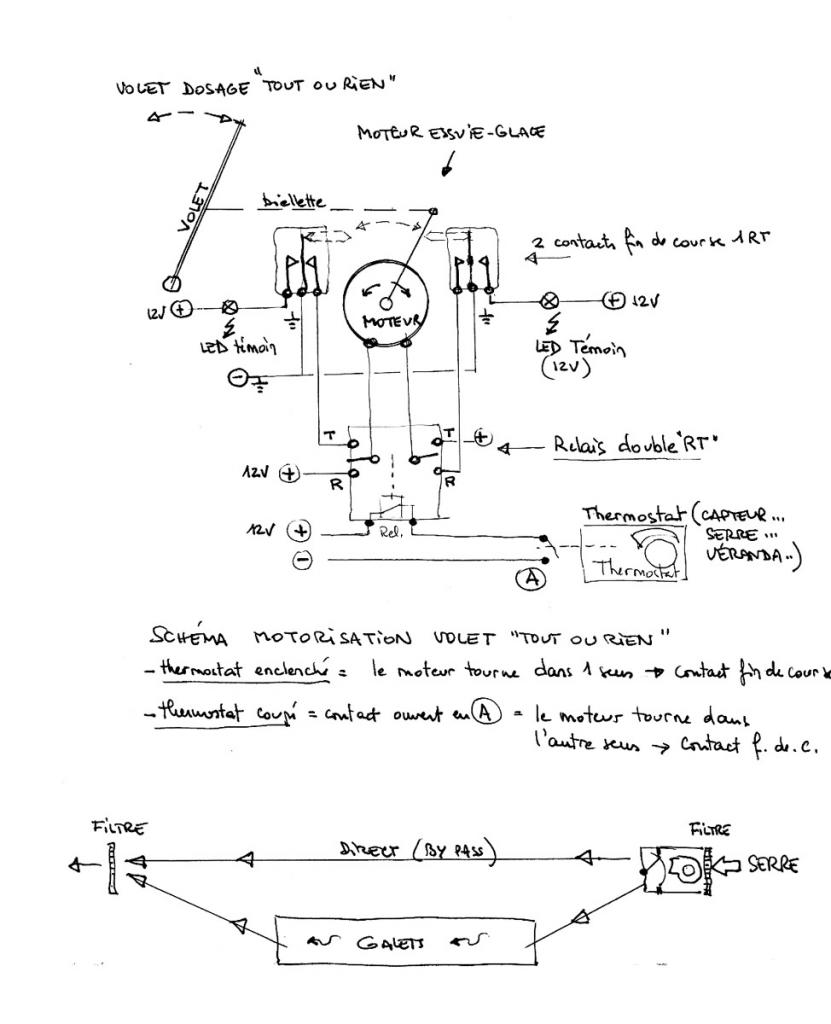 VOLET DOSAGE "TOUT OU RIEN"
MOTEUR ESSUIE-GLACE
VOLET
biellette
2 contacts fin de course 1RT
12V +
+ 12V
MOTEUR
LED témoin
LED Témoin
(12V)
-
T
T
+
Relais double "RT"
12V +
R
R
Thermostat (CAPTEUR...
SERRE ...
VÉRANDA..)
12V +
Rel.
-
Thermostat
A
SCHÉMA MOTORISATION VOLET "TOUT OU RIEN"
- thermostat enclenché = le moteur tourne dans 1 sens → contact fin de course
- thermostat coupé = contact ouvert en A = le moteur tourne dans
l'autre sens → contact f. de. c.
FILTRE
FILTRE
DIRECT (BY PASS)
SERRE
GALETS